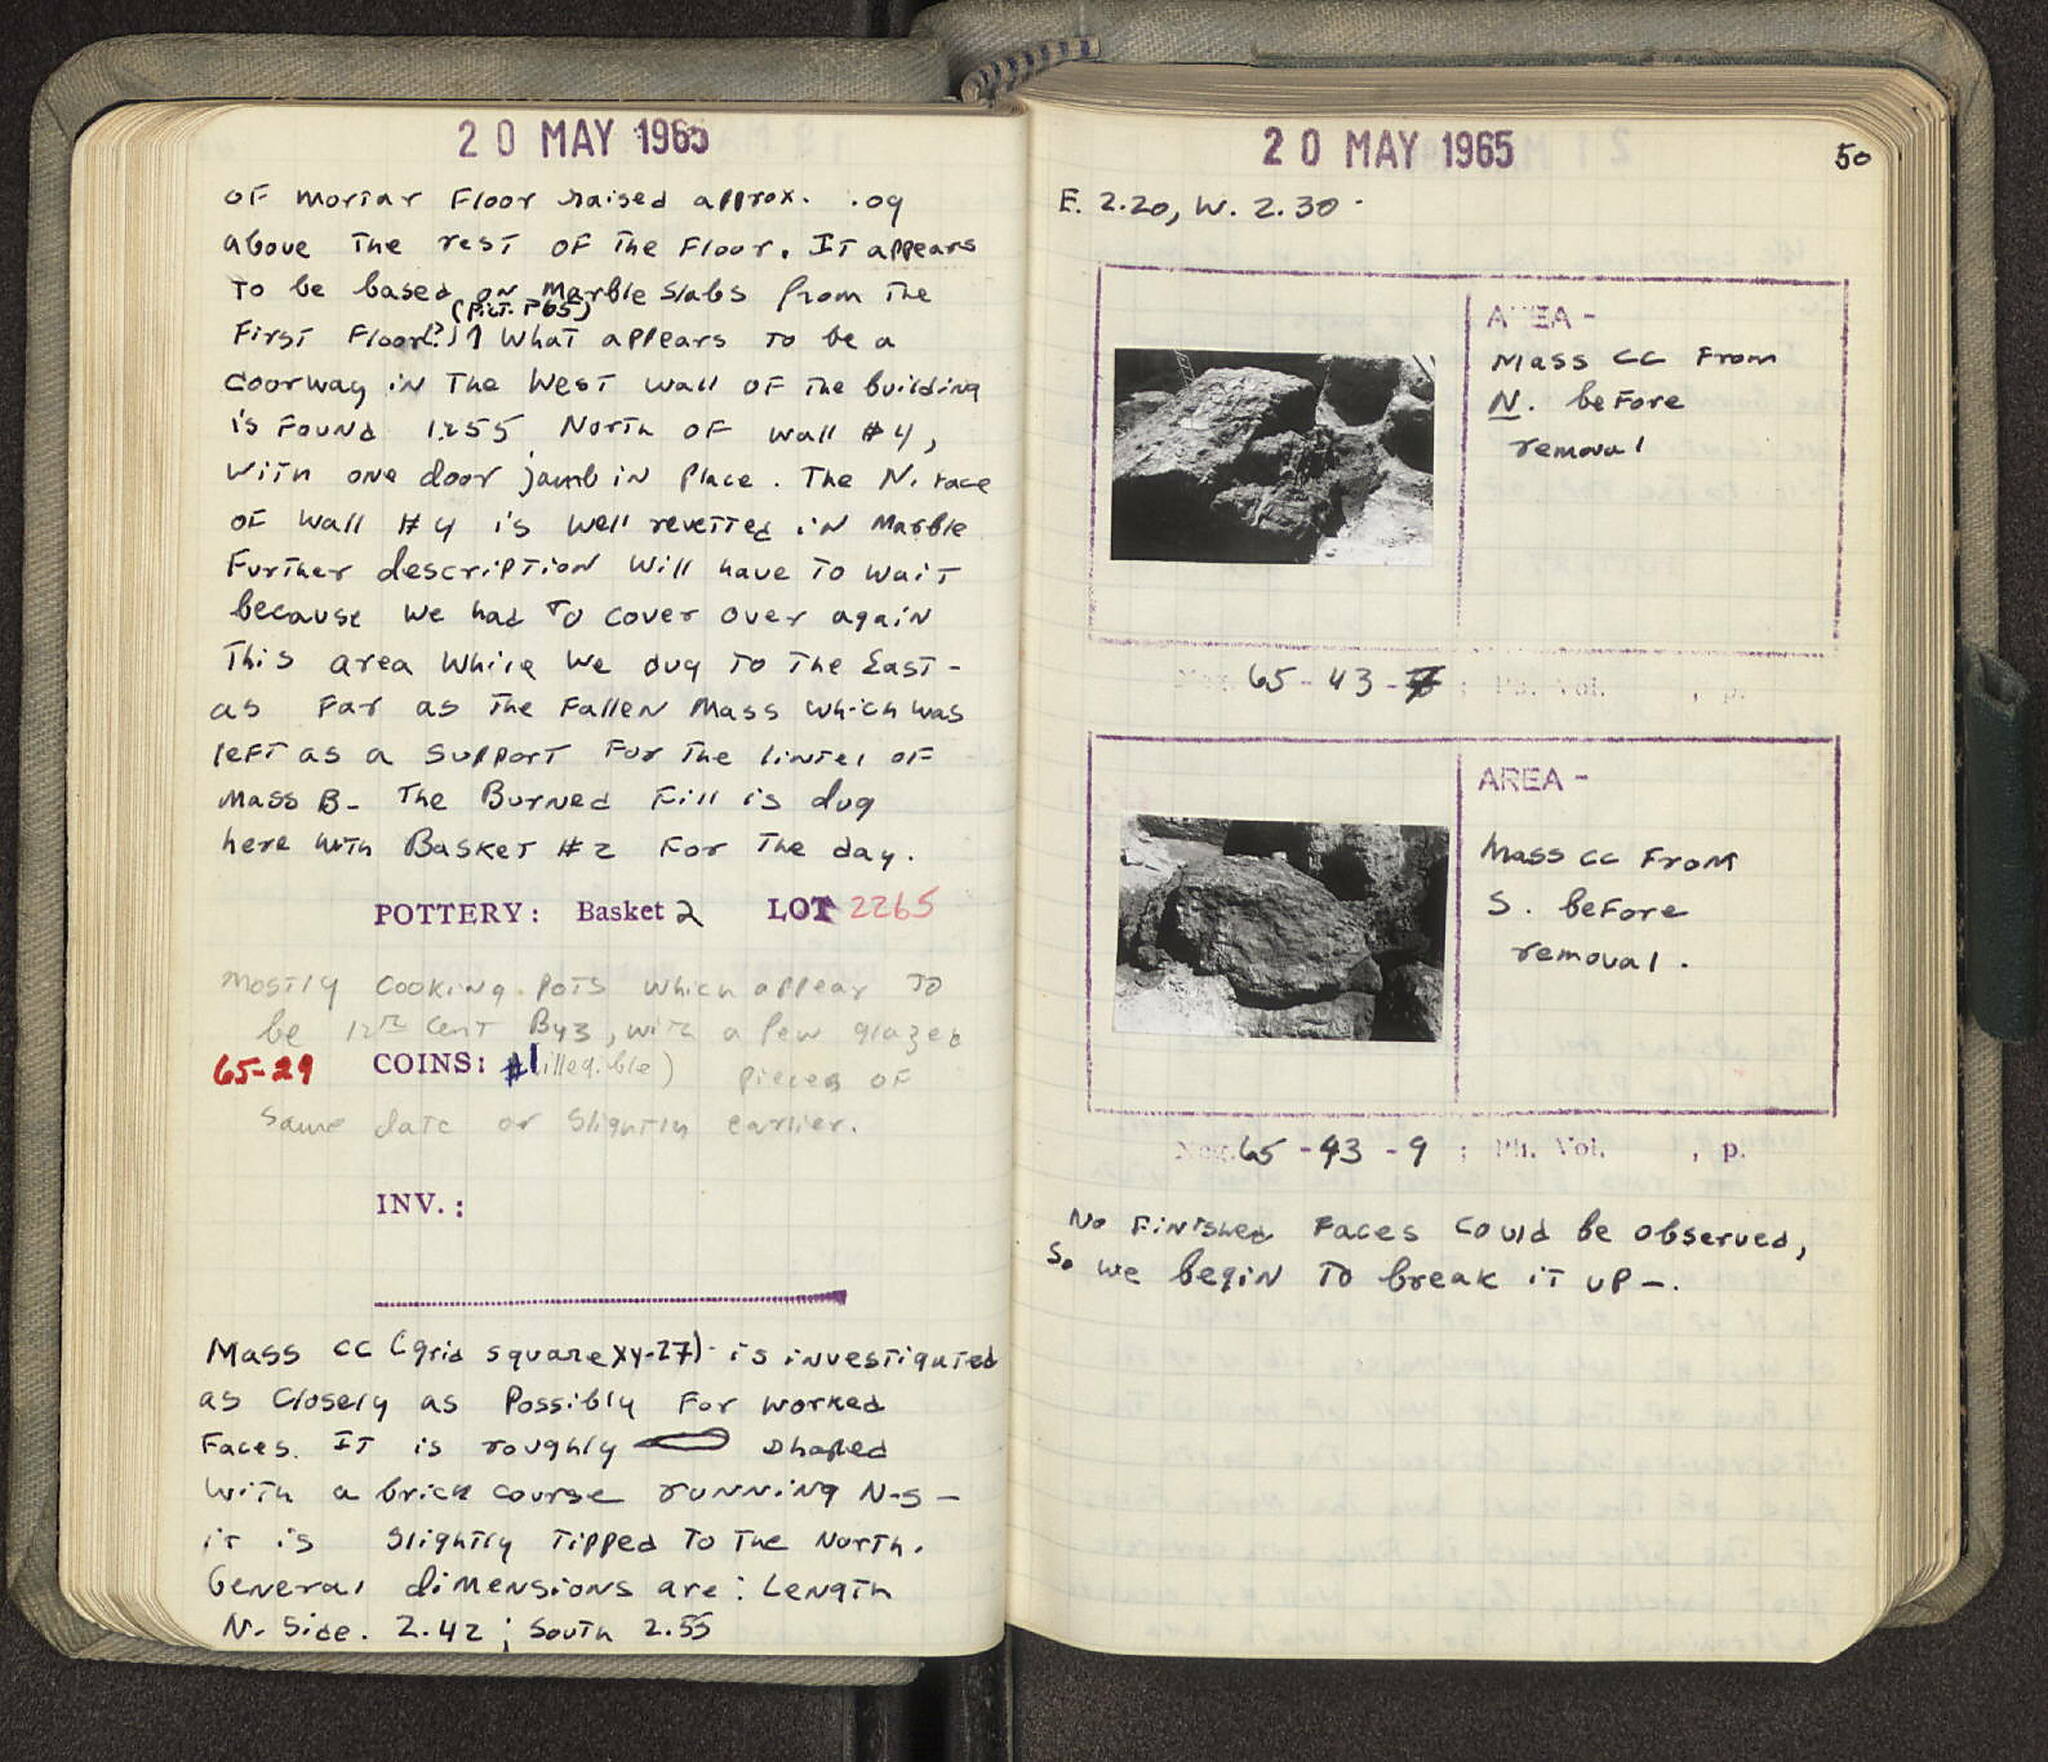 20 MAY 1965
of mortar Floor raised approx. .09
above the rest of the Floor. It appears
to be based on Marble slabs from the
(Pict. P65)
First Floor(?) What appears to be a
doorway in the West wall of the building
is found 1.255 North of wall #4,
with one door jamb in place. The N. face
of wall #4 is well revetted in Marble
Further description will have to wait
because we had to cover over again
this area while we dug to the East -
as far as the Fallen Mass which was
left as a support for the lintel of
Mass B- The Burned Fill is dug
here with Basket #2 for the day.
POTTERY: Basket 2 LOT 2265
mostly cooking pots which appear to
be 12th Cent Byz, with a few glazed
65-29 COINS: #1 (illegible) pieces of
same date or slightly earlier.
INV.:
Mass CC (grid square XY-27) is investigated
as closely as possibly for worked
Faces. It is roughly shaped
with a brick course running N-S -
it is slightly tipped to the North.
General dimensions are: Length
N. Side. 2.42; South 2.55
20 MAY 1965
50
E. 2.20, W. 2.30.
AREA -
Mass CC From
N. before
removal
Neg. 65-43- ; Ph. Vol. , p.
AREA -
Mass CC From
S. before
removal.
Neg. 65-43-9 ; Ph. Vol. , p.
No finished Faces could be observed,
So we begin to break it up -.